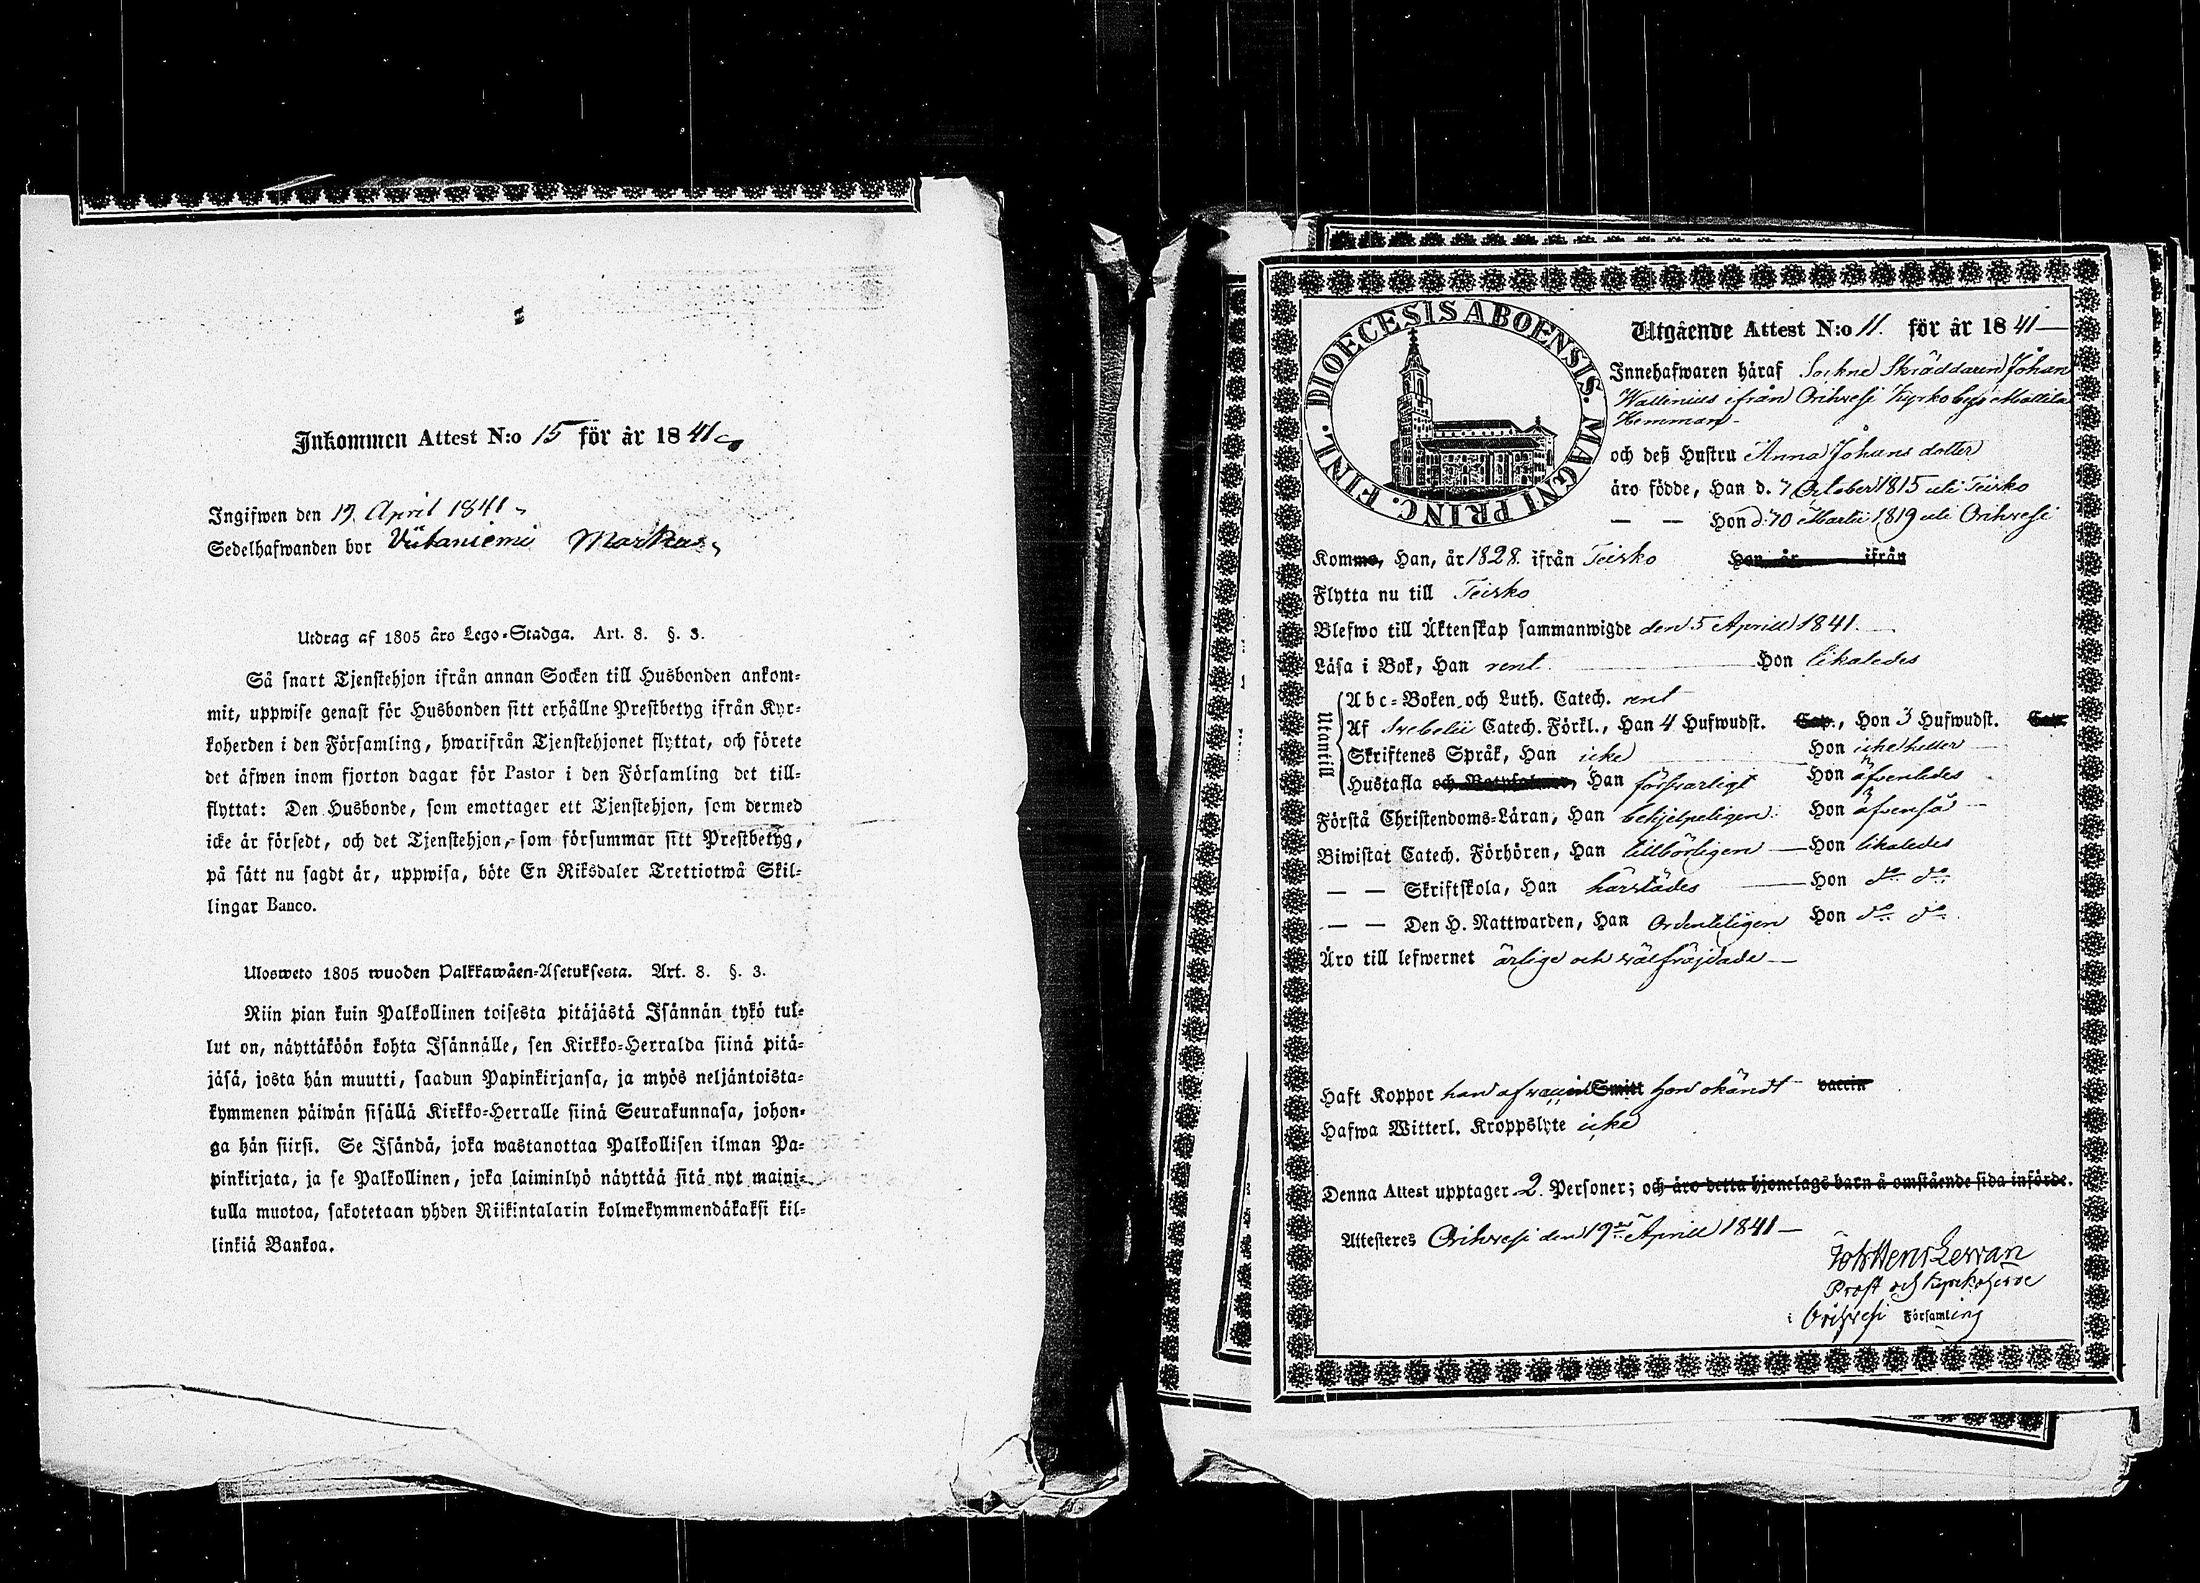 Inkommen Attest N:o 15 för år 1841
Ingifwen den 19. April 1841
Sedelhafwanden bor Viitaniemi Markus
Utdrag af 1805 års Lego-Stadga. Art. 8. §. 3.
Så snart Tjenstehjon ifrån annan Socken till Husbonden ankom-
mit, uppwise genast för Husbonden sitt erhållne Prestbetyg ifrån Kyr-
koherden i den Församling, hwarifrån Tjenstehjonet flyttat, och förete
det äfwen inom fjorton dagar för Pastor i den Församling det till-
flyttat: Den Husbonde, som emottager ett Tjenstehjon, som dermed
icke är försedt, och det Tjenstehjon, som försummar sitt Prestbetyg,
på sätt nu sagdt är, uppwisa, böte En Riksdaler Trettiotwå Skil-
lingar Banco.
Ulosweto 1805 wuoden Palkkawäen-Asetuksesta. Art. 8. §. 3.
Niin pian kuin Palkollinen toisesta pitäjästä Isännän tykö tul-
lut on, näyttäköön kohta Isännälle, sen Kirkko-Herralda siinä pitä-
jäsä, josta hän muutti, saadun Papinkirjansa, ja myös neljäntoista-
kymmenen päiwän sisällä Kirkko-Herralle siinä Seurakunnasa, johon-
ga hän siirsi. Se Isändä, joka wastanottaa Palkollisen ilman Pa-
pinkirjata, ja se Palkollinen, joka laiminlyö näyttää sitä nyt maini-
tulla muotoa, sakotetaan yhden Riikintalarin kolmekymmendäkaksi kil-
linkiä Bankoa.
DIOECESIS ABOENSIS. MAGNI PRINC. FINL.
Utgående Attest N:o 11. för år 1841
Innehafwaren häraf Sockne Skräddaren Johan
Wallenius ifrån Orihvesi Kyrkobys Mattila
Hemman
och deß Hustru Anna Johans dotter
äro födde, Han d. 7 October 1815 uti Teisko
— — Hon d. 10 Martii 1819 uti Orihvesi
Komme, Han, år 1828. ifrån Teisko Hon år ifrån
Flytta nu till Teisko
Blefwo till Äktenskap sammanwigde den 5 Aprill 1841.
Läsa i Bok, Han rent Hon likaledes
Utantill
Abc-Boken och Luth. Catech. rent
Af Svebelii Catech. Förkl., Han 4 Hufwudst. Cap., Hon 3 Hufwudst. Cap.
Skriftenes Språk, Han icke Hon icke heller
Hustafla och Botpsalmer, Han försvarligt Hon äfvenledes
Förstå Christendoms-Läran, Han behjelpeligen Hon äfvenså
Biwistat Catech. Förhören, Han tillbörligen Hon likaledes
— — Skriftskola, Han härstädes Hon do do
— — Den H. Nattwarden, Han Ordenteligen Hon do do
Äro till lefwernet ärlige och välfräjdade
Haft Koppor han af vaccin Smitt hon okändt vaccin
Hafwa Witterl. Kroppslyte icke
Denna Attest upptager 2. Personer; och äro detta hjonelags barn å omstående sida införde.
Attesteres Orihvesi den 19de Aprill 1841
Prost och Kyrkoherde
i Orihvesi Församling